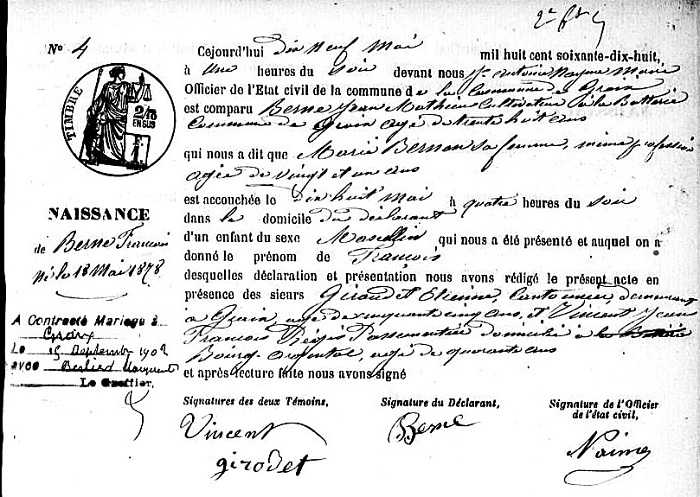 2e
No 4
Cejourd'hui dix neuf Mai mil huit cent soixante-dix-huit,
à Une heures du soir devant nous Maire
Officier de l'Etat civil de la commune de la Commune de
est comparu Berne Jean Mathieu Cultivateur à la
Commune de agé de trente huit ans
qui nous a dit que Marie sa femme, même profession
agée de vingt et un ans
est accouchée le dix huit Mai à quatre heures du soir
dans le domicile du déclarant
d'un enfant du sexe Masculin qui nous a été présenté et auquel on a
donné le prénom de François
desquelles déclaration et présentation nous avons rédigé le présent acte en
présence des sieurs Girodet Etienne, Cantonnier, demeurant
à agé de cinquante cinq ans, et Vincent Jean
François Régis Passementier domicilié à
Bourg-Argental, agé de quarante ans
et après lecture faite nous avons signé
TIMBRE
2/10
EN SUS
NAISSANCE
de Berne François
Né le 18 Mai 1878
A Contracté Mariage à
Le 15 Septembre 190
avec
Le Greffier,
Signatures des deux Témoins,
Signature du Déclarant,
Signature de l'Officier
de l'état civil,
Vincent
girodet
Berne